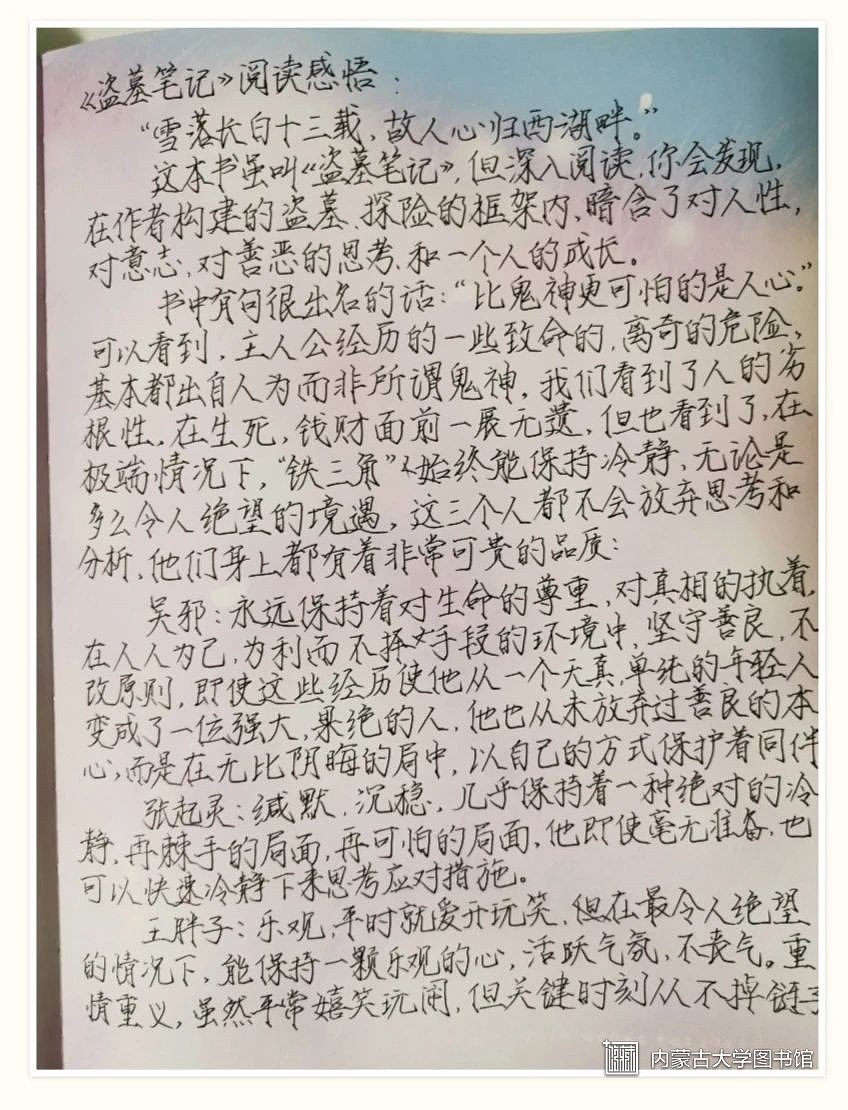 《盗墓笔记》阅读感悟：
“雪落长白十三载，故人心归西湖畔。”
这本书虽叫《盗墓笔记》，但深入阅读，你会发现，
在作者构建的盗墓、探险的框架内，暗含了对人性，
对意志，对善恶的思考、和一个人的成长。
书中有句很出名的话：“比鬼神更可怕的是人心。”
可以看到，主人公经历的一些致命的，离奇的危险，
基本都出自人为而非所谓鬼神，我们看到了人的劣
根性，在生死，钱财面前一展无遗，但也看到了，在
极端情况下，“铁三角”始终能保持冷静，无论是
多么令人绝望的境遇，这三个人都不会放弃思考和
分析，他们身上都有着非常可贵的品质：
吴邪：永远保持着对生命的尊重，对真相的执着，
在人人为己，为利而不择手段的环境中，坚守善良，不
改原则，即使这些经历使他从一个天真，单纯的年轻人
变成了一位强大，果绝的人，他也从未放弃过善良的本
心，而是在无比阴晦的局中，以自己的方式保护着同伴
张起灵：缄默，沉稳，几乎保持着一种绝对的冷
静，再棘手的局面，再可怕的局面，他即使毫无准备，也
可以快速冷静下来思考应对措施。
王胖子：乐观，平时就爱开玩笑，但在最令人绝望
的情况下，能保持一颗乐观的心，活跃气氛，不丧气。重
情重义，虽然平常嬉笑玩闹，但关键时刻从不掉链子
内蒙古大学图书馆